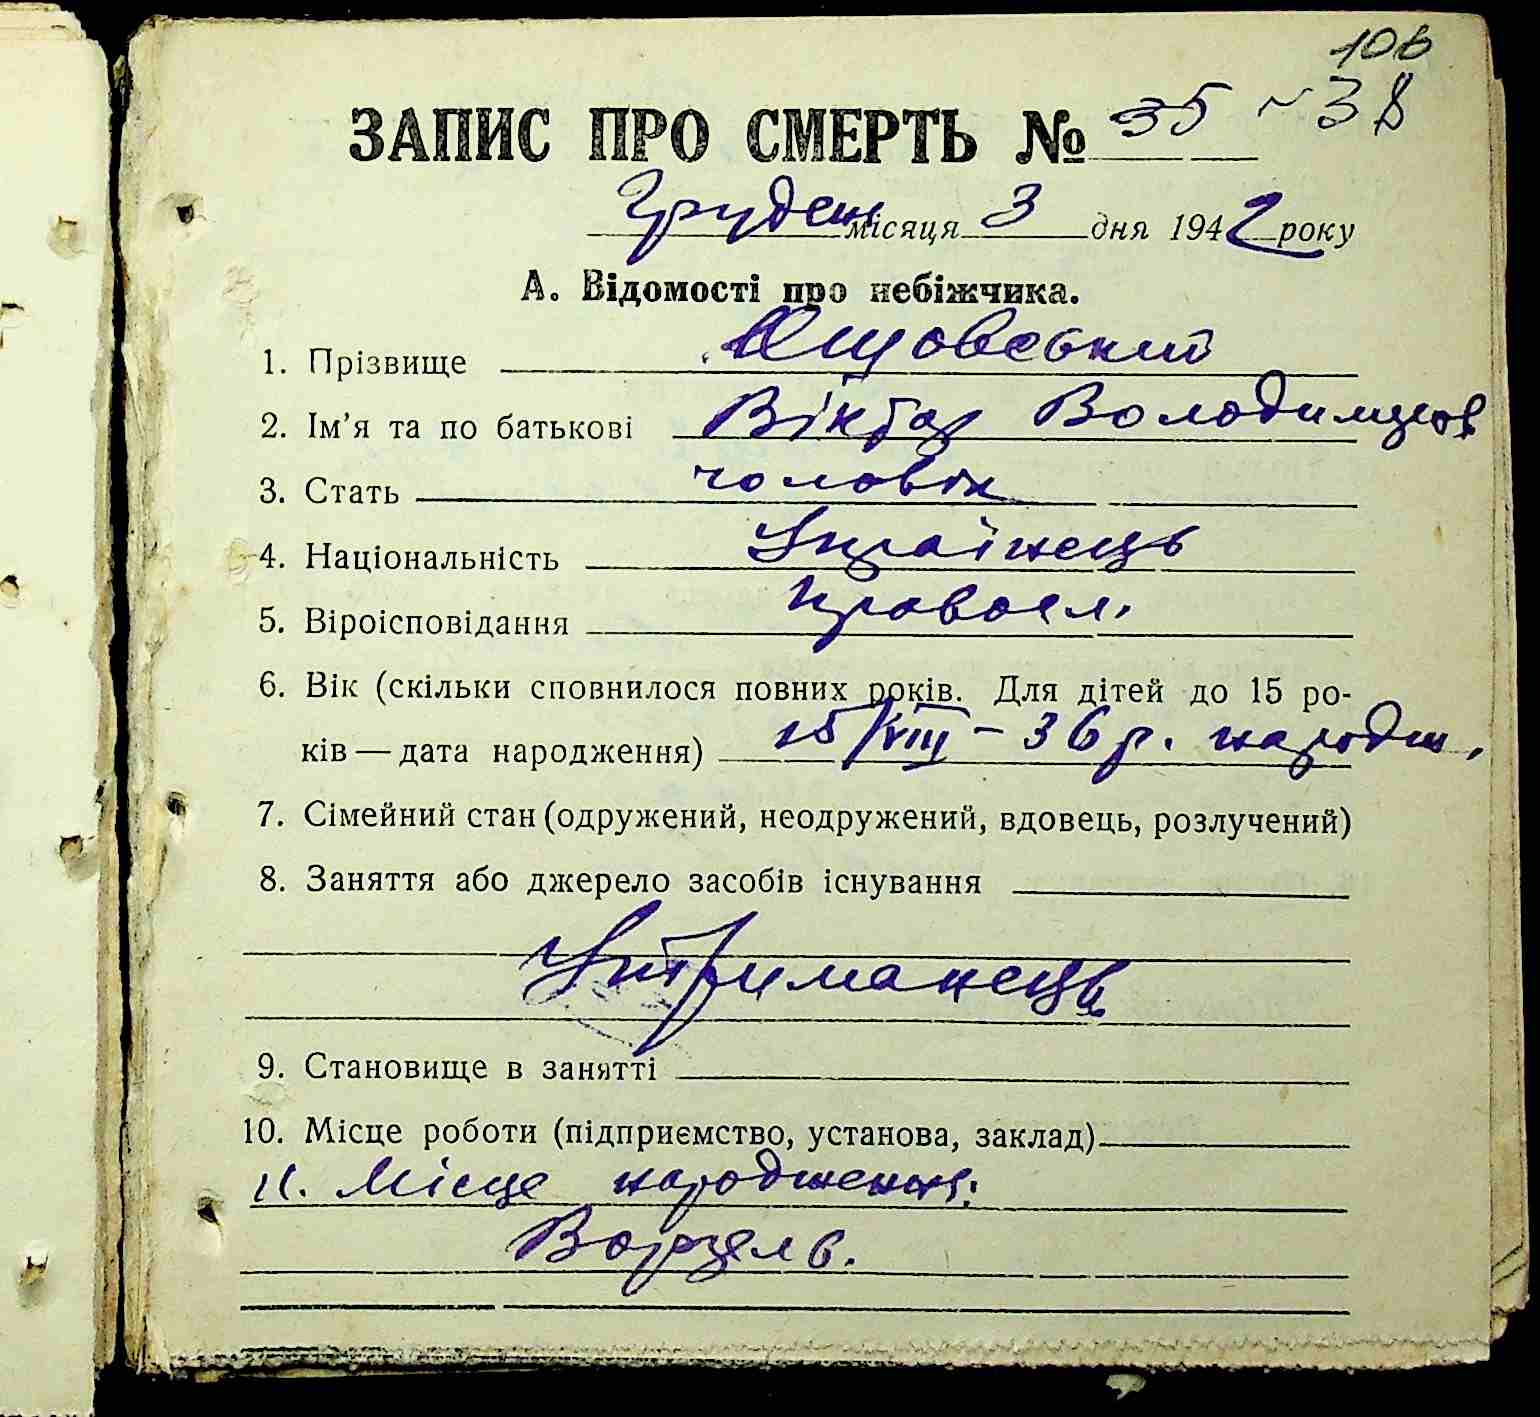 106
ЗАПИС ПРО СМЕРТЬ № 35 ~ 38
Грудень місяця 3 дня 1942 року
А. Відомості про небіжчика.
1. Прізвище
2. Ім'я та по батькові Віктор Володимиров
3. Стать чоловік
4. Національність Українець
5. Віроісповідання Правосл.
6. Вік (скільки сповнилося повних років. Для дітей до 15 ро-
ків — дата народження) 15/VIII – 36 р. народж.
7. Сімейний стан (одружений, неодружений, вдовець, розлучений)
8. Заняття або джерело засобів існування
Утриманець
9. Становище в занятті
10. Місце роботи (підприємство, установа, заклад)
11. Місце народження:
Ворзель.